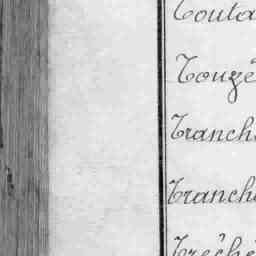 Touta
Touzé
Tranch
Tranch
Tréché